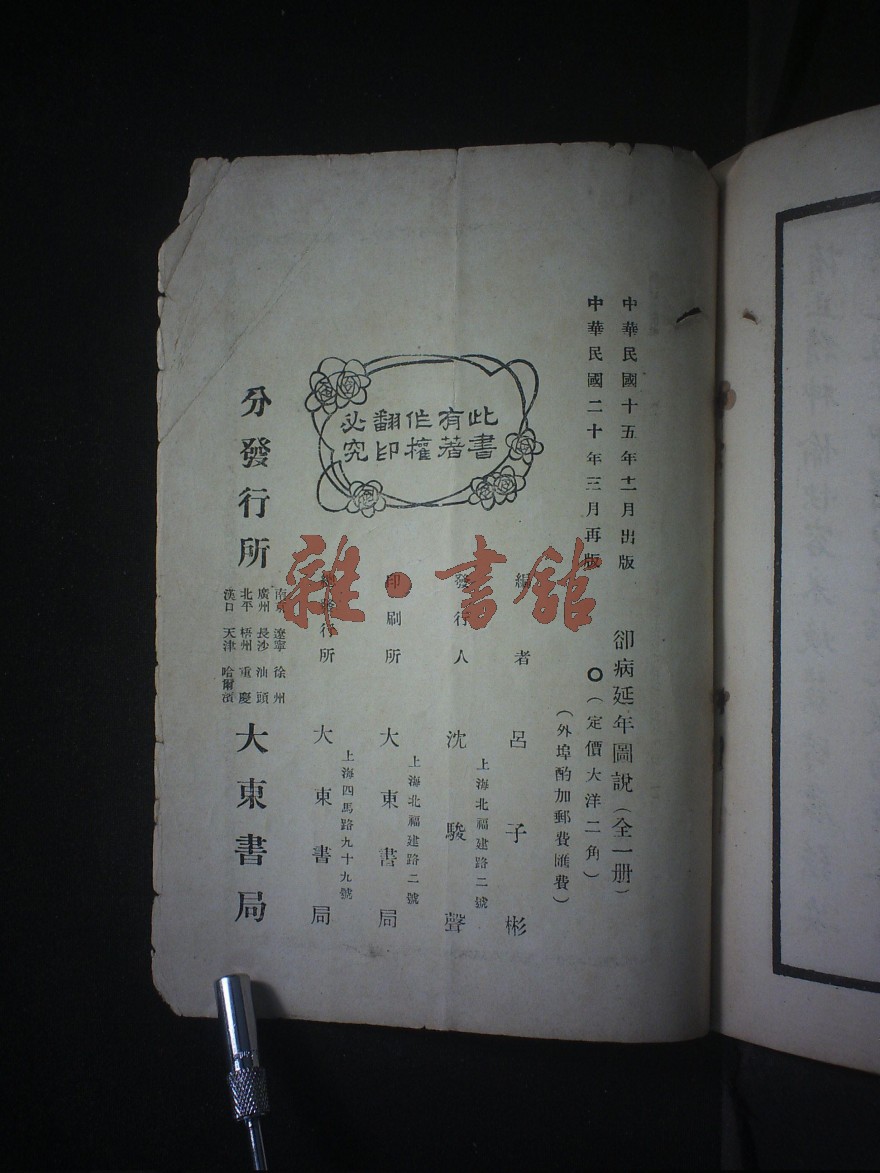 中華民國十五年十一月出版
中華民國二十年三月再版
卻病延年圖說（全一册）
（定價大洋二角）
（外埠酌加郵費匯費）
編者 呂子彬
發行人 沈駿聲
上海北福建路二號
印刷所 大東書局
上海北福建路二號
總發行所 大東書局
上海四馬路九十九號
分發行所 大東書局
南京 遼寧 徐州
廣州 長沙 汕頭
北平 梧州 重慶
漢口 天津 哈爾濱
此書
有著
作權
翻印
必究
雜·書館